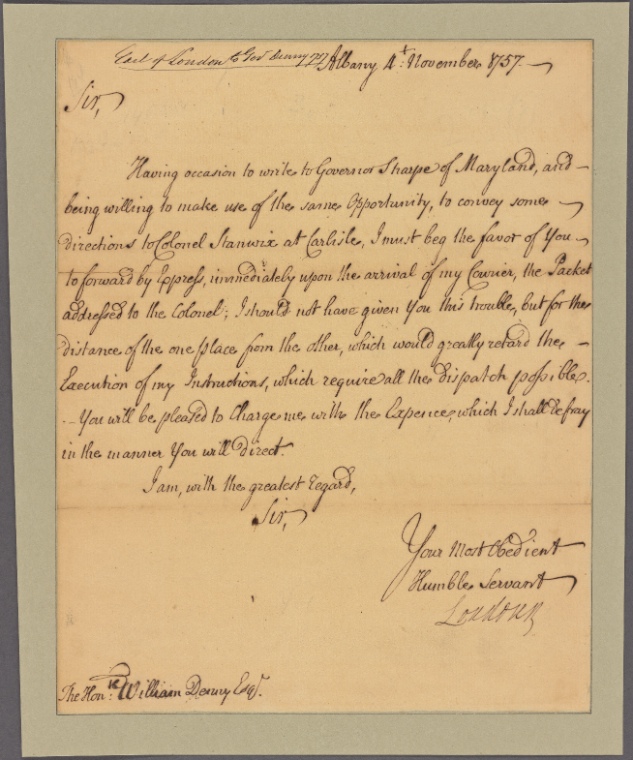 Earl of Loudon to Gov Denny 1757
Albany 4.t November 1757.
Sir,
Having occasion to write to Governor Sharpe of Maryland, and
being willing to make use of the same Opportunity, to convey some
directions to Colonel Stanwix at Carlisle, I must beg the favor of You
to forward by Express, immediately upon the arrival of my Courier, the Packet
addressed to the Colonel; I should not have given You this trouble, but for the
distance of the one place from the other, which would greatly retard the
Execution of my Instructions, which require all the dispatch possible.
You will be pleased to Charge me with the Expence, which I shall Defray
in the manner You will direct.
I am, with the greatest Regard,
Sir,
Your Most Obedient
Humble Servant
Loudoun
The Hon.ble William Denny Esq.r